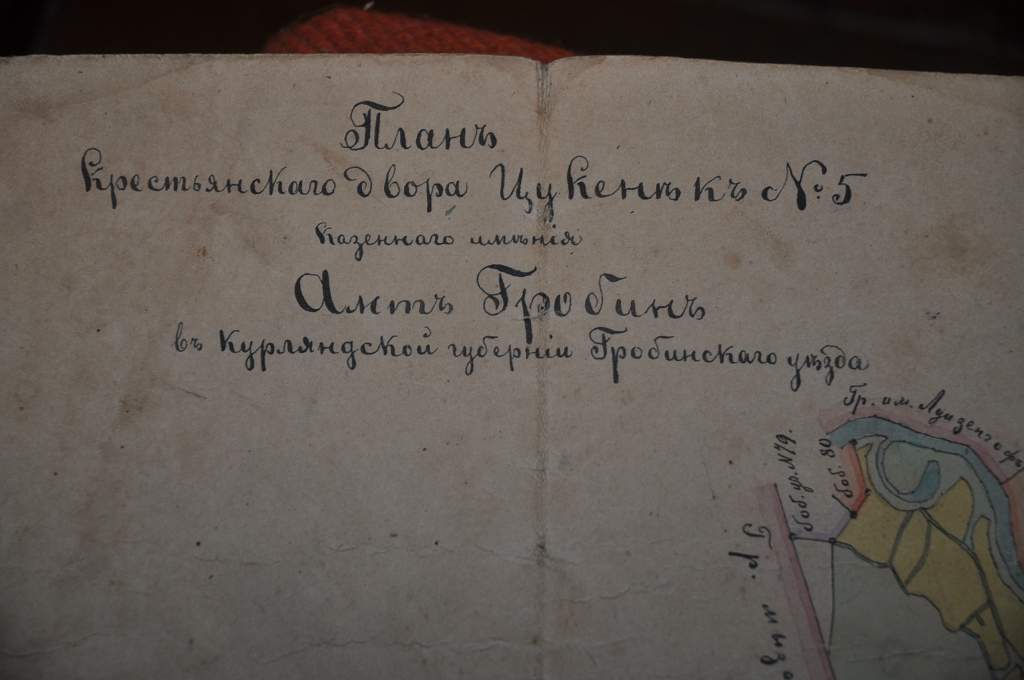 Планъ
Крестьянскаго двора Цукенѣкъ №. 5
Казеннаго имѣнія
Амтъ Гробинъ
въ Курляндской губерніи Гробинскаго уѣзда
Гр. им. Луизенгофъ
боб. уч. №79.
боб. 80
Гр.